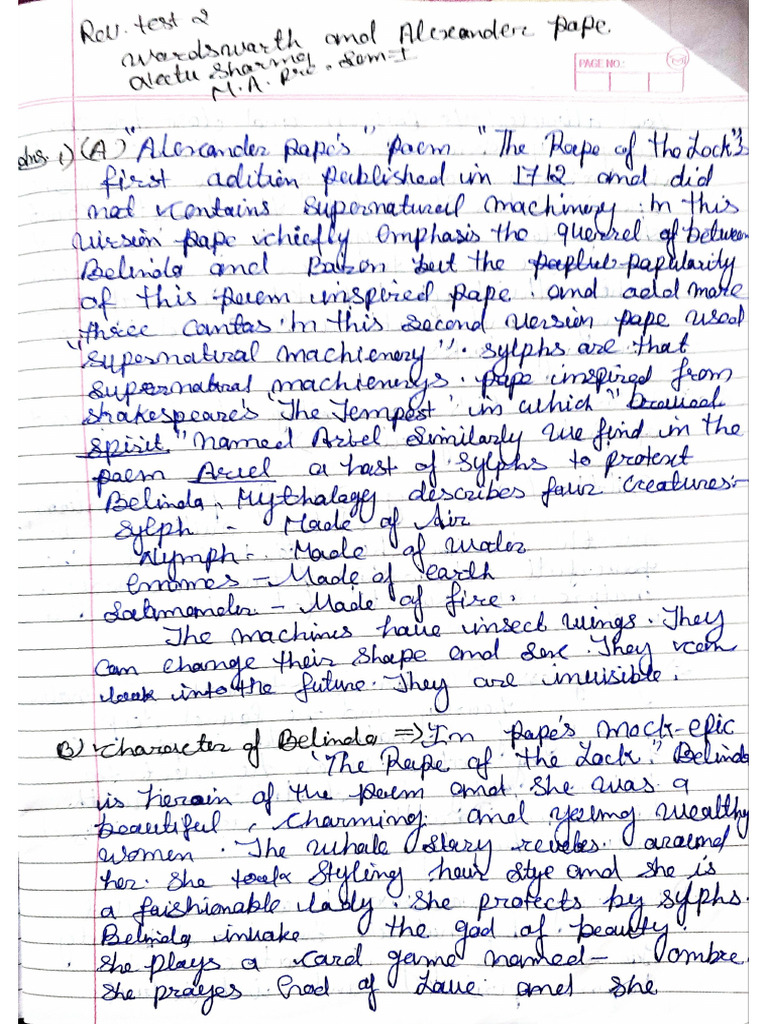 Rev. test 2
Wordswarth and Alexander pape.
Neetu Sharma
M.A. Pre. Sem-I
PAGE NO.:
Ans. 1) (A) "Alexander Pape's" Paem "The Reepe of the Lock"s
first adition published in 1712 and did
not contains supernatural machinery. In this
version pape chiefly emphasis the querrel of between
Belinda and Baron but the papularity
of this paem inspired pape. and add more
three cantas. In this second version pape used
"supernatural machienery". sylphs are that
supernatural machienerys. pape inspired from
shakespeare's 'The Tempest' in which "
spirit" named Ariel similarly we find in the
paem Ariel a hast of sylphs to protect
Belinda. Mythalagy describes faur creatures:-
Sylph :- Made of Air
Nymph :- Made of water
Gnomes - Made of earth
Salamander - Made of fire.
The machines have insect wings. They
can change their shape and sex. They can
look into the future. They are invisible.
B) character of Belinda => In pape's mock-epic
'The Rape of the Lock." Belinda
is herain of the paem and she was a
beautiful, charming and young wealthy
women. The whale stary reveles around
her. She Styling hair stye and she is
a faishionable lady. She protects by sylphs.
Belinda invake the gad of beauty.
She plays a card game named - Ombre.
She prayes God of Lave and she